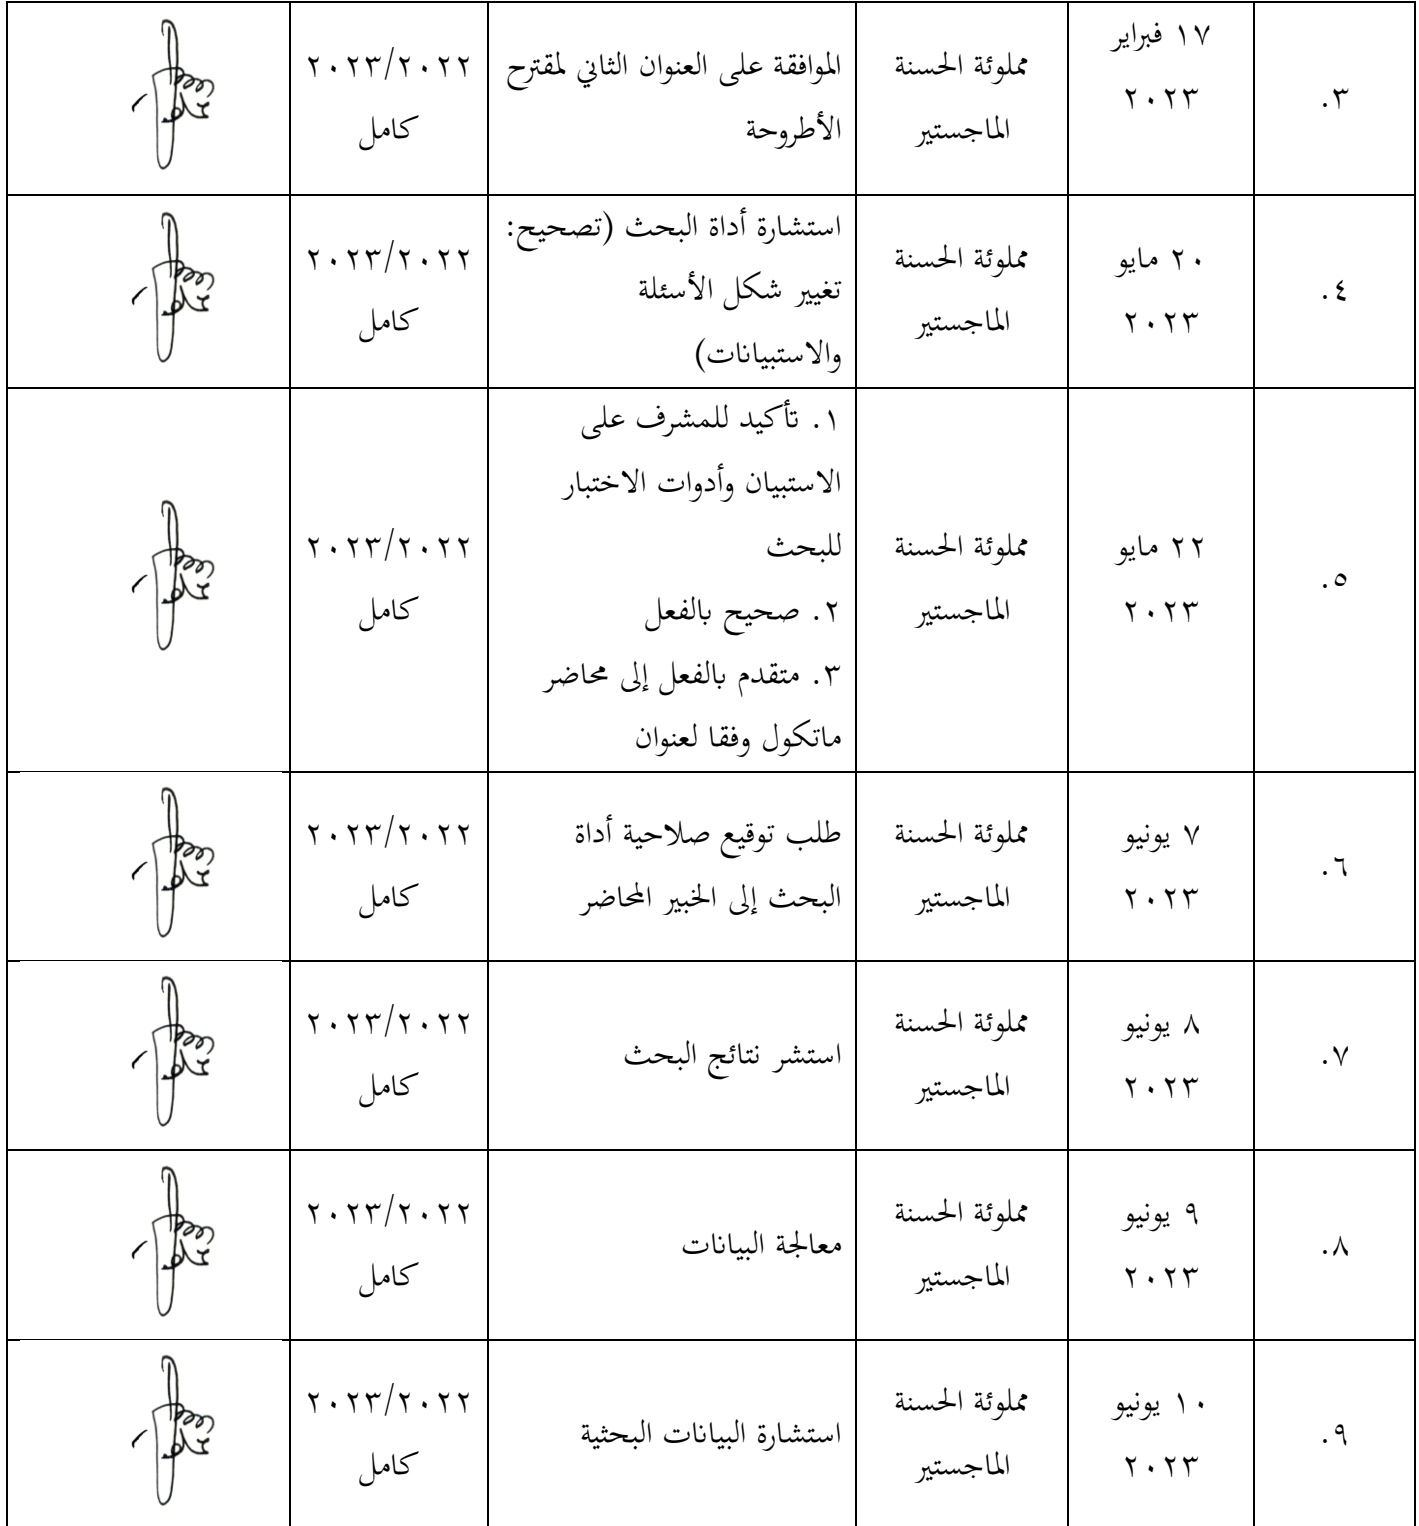 ٣.
١٧ فبراير
٢٠٢٣
مملوئة الحسنة
الماجستير
الموافقة على العنوان الثاني لمقترح
الأطروحة
٢٠٢٣/٢٠٢٢
كامل
٤.
٢٠ مايو
٢٠٢٣
مملوئة الحسنة
الماجستير
استشارة أداة البحث (تصحيح:
تغيير شكل الأسئلة
والاستبيانات)
٢٠٢٣/٢٠٢٢
كامل
٥.
٢٢ مايو
٢٠٢٣
مملوئة الحسنة
الماجستير
١. تأكيد للمشرف على
الاستبيان وأدوات الاختبار
للبحث
٢. صحيح بالفعل
٣. متقدم بالفعل إلى محاضر
ماتكول وفقا لعنوان
٢٠٢٣/٢٠٢٢
كامل
٦.
٧ يونيو
٢٠٢٣
مملوئة الحسنة
الماجستير
طلب توقيع صلاحية أداة
البحث إلى الخبير المحاضر
٢٠٢٣/٢٠٢٢
كامل
٧.
٨ يونيو
٢٠٢٣
مملوئة الحسنة
الماجستير
استشر نتائج البحث
٢٠٢٣/٢٠٢٢
كامل
٨.
٩ يونيو
٢٠٢٣
مملوئة الحسنة
الماجستير
معالجة البيانات
٢٠٢٣/٢٠٢٢
كامل
٩.
١٠ يونيو
٢٠٢٣
مملوئة الحسنة
الماجستير
استشارة البيانات البحثية
٢٠٢٣/٢٠٢٢
كامل